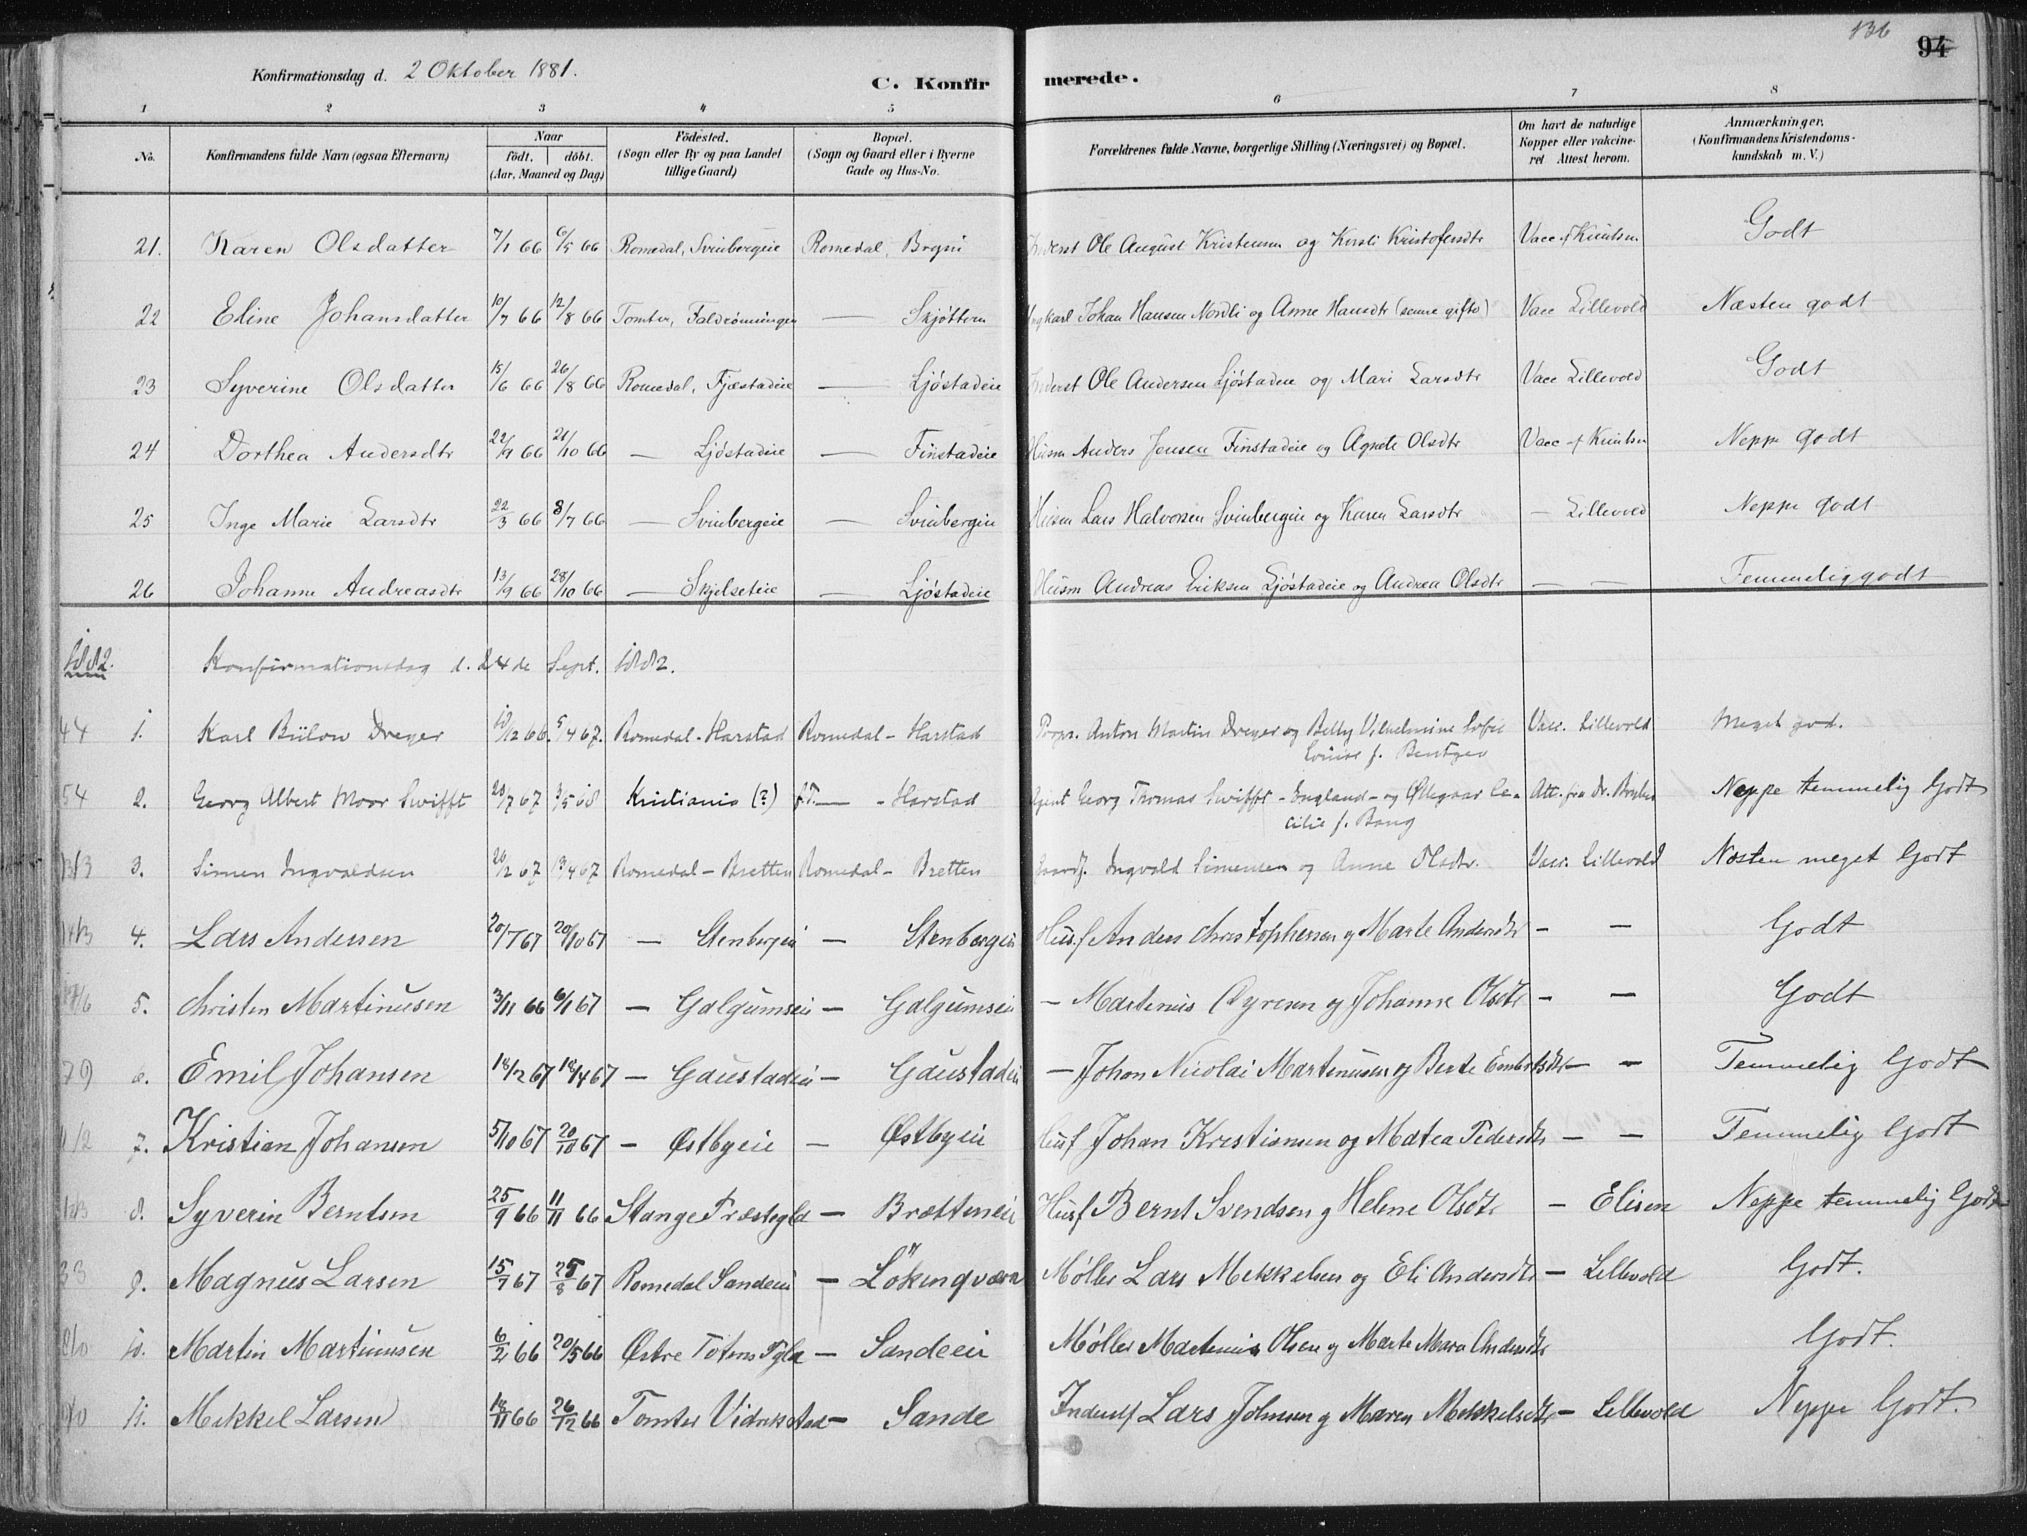 136
94
Konfirmationsdag d. 2 Oktober 1881.
C. Konfirmerede.
1 2 3 4 5 6 7 8
No.
Konfirmandens fulde Navn (ogsaa Efternavn)
Naar
født. døbt.
(Aar, Maaned og Dag)
Födested.
(Sogn eller By og paa Landet
tillige Gaard)
Bopæl.
(Sogn og Gaard eller i Byerne
Gade og Hus-No.
Forældrenes fulde Navne, borgerlige Stilling (Næringsvei) og Bopæl.
Om havt de naturlige
Kopper eller vakcine-
ret Attest herom.
Anmærkninger.
(Konfirmandens Kristendoms-
kundskab m. V.)
21. Karen Olsdatter 7/1 66 6/5 66 Romedal, Svinbergeie Romedal, Inderst Ole August Kristensen og Kirsti Kristofersdtr Vacc f Knutsen Godt
22 Eline Johansdatter 10/7 66 12/8 66 Tomter, — Skjøttern Johan Hansen Nordli og Anne Hansdtr (senne gifte) Vacc Lillevold Næsten godt
23 Syverine Olsdatter 15/6 66 26/8 66 Romedal, Fjæstadeie — Ljøstadeie Inderst Ole Andersen Ljøstadeie og Mari Larsdtr Vacc Lillevold Godt
24 Dorthea Andersdtr 22/9 66 21/10 66 — Ljøstadeie — Finstadeie Husm Anders Jensen Finstadeie og Agnete Olsdtr Vacc f Knutsen Neppe godt
25 Inge Marie Larsdtr 22/3 66 8/7 66 — Svinbergeie — Svinbergeie Husm Lars Halvorsen Svinbergeie og Karen Larsdtr — Lillevold Neppe godt
26 Johanne Andreasdtr 13/9 66 28/10 66 — Skjelseteie — Ljøstadeie Husm Andreas Eriksen Ljøstadeie og Andrea Olsdtr — — Temmelig godt
1882. Konfirmationsdag d. 24de Sept. 1882.
44 1. Karl Bülow Dreyer 10/12 66. 5/4 67. Romedal - Harstad Romedal - Harstad Anton Martin Dreyer og Betty Vilhelmine Sofie Vacc. Lillevold Meget god.
Louise f. Bentzen
54 2. Georg Albert Moor Swifft 28/7 67 Kristiania (?) — - Harstad Agent Georg Thomas Swifft - England - og Øllegaar Ce- Att. fra Dr. Neppe temmelig Godt
cilie f. Bang
3. Simen Ingvaldsen 20/2 67 13/4 67 Romedal - Bretten Romedal - Bretten Gaardf. Ingvald Simensen og Anne Olsdtr. Vacc. Lillevold Næsten meget Godt
4. Lars Andersen 20/7 67 20/10 67 — Stenbergeie — Stenbergeie Husf Anders Christophersen og Marte Andersdtr — — Godt
5. Christen Martinusen 3/11 66 6/1 67 — Galgumseie — Galgumseie — Martinus Syversen og Johanne Olsdtr — — Godt
79 6. Emil Johansen 14/1267 14/4 67 — Gaustadeie — Gaustadeie — Johan Nicolai Martinusen og Berte Embretsdtr — — Temmelig Godt
7. Kristian Johansen 5/10 67 20/10 67 — Østbyeie — Østbyeie Husf Johan Kristiansen og Matea Pedersdtr — — Temmelig Godt
8. Syverin Berntsen 25/9 66 11/11 66 Stange Præstegld — Brætteneie Husf Bernt Svendsen og Helene Olsdtr — Elisen Neppe temmelig Godt
33 9. Magnus Larsen 15/7 67 25/8 67 Romedal Sandeeie — Løkenqværn Møller Lars Mekkelsen og Eli Andersdtr — Lillevold Godt.
10. Martin Martinusen 6/2 66 20/5 66 Østre Totens Pgld — Sandeeie Møller Martinus Olsen og Marte Mara Andersdtr Godt.
11. Mekkel Larsen 18/11 66 26/12 66 Tomter Vidrikstad — Sande Inderst Lars Johnsen og Maren Mekkelsdtr — Lillevold Neppe Godt.